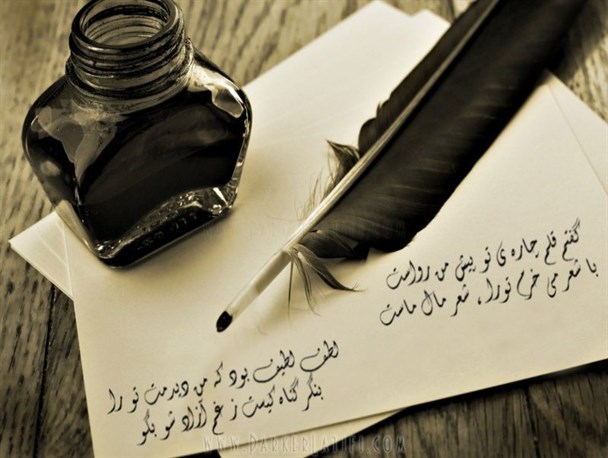 گفتم قلم چاره ی تو پیش من رواست
با شعر می خرم تورا ، شعر مال ماست
لطف لطیف بود که من دیدمت تو را
بنگر گناه کیست ز غم آزاد شو بگو
www.ParkerLatifi.com